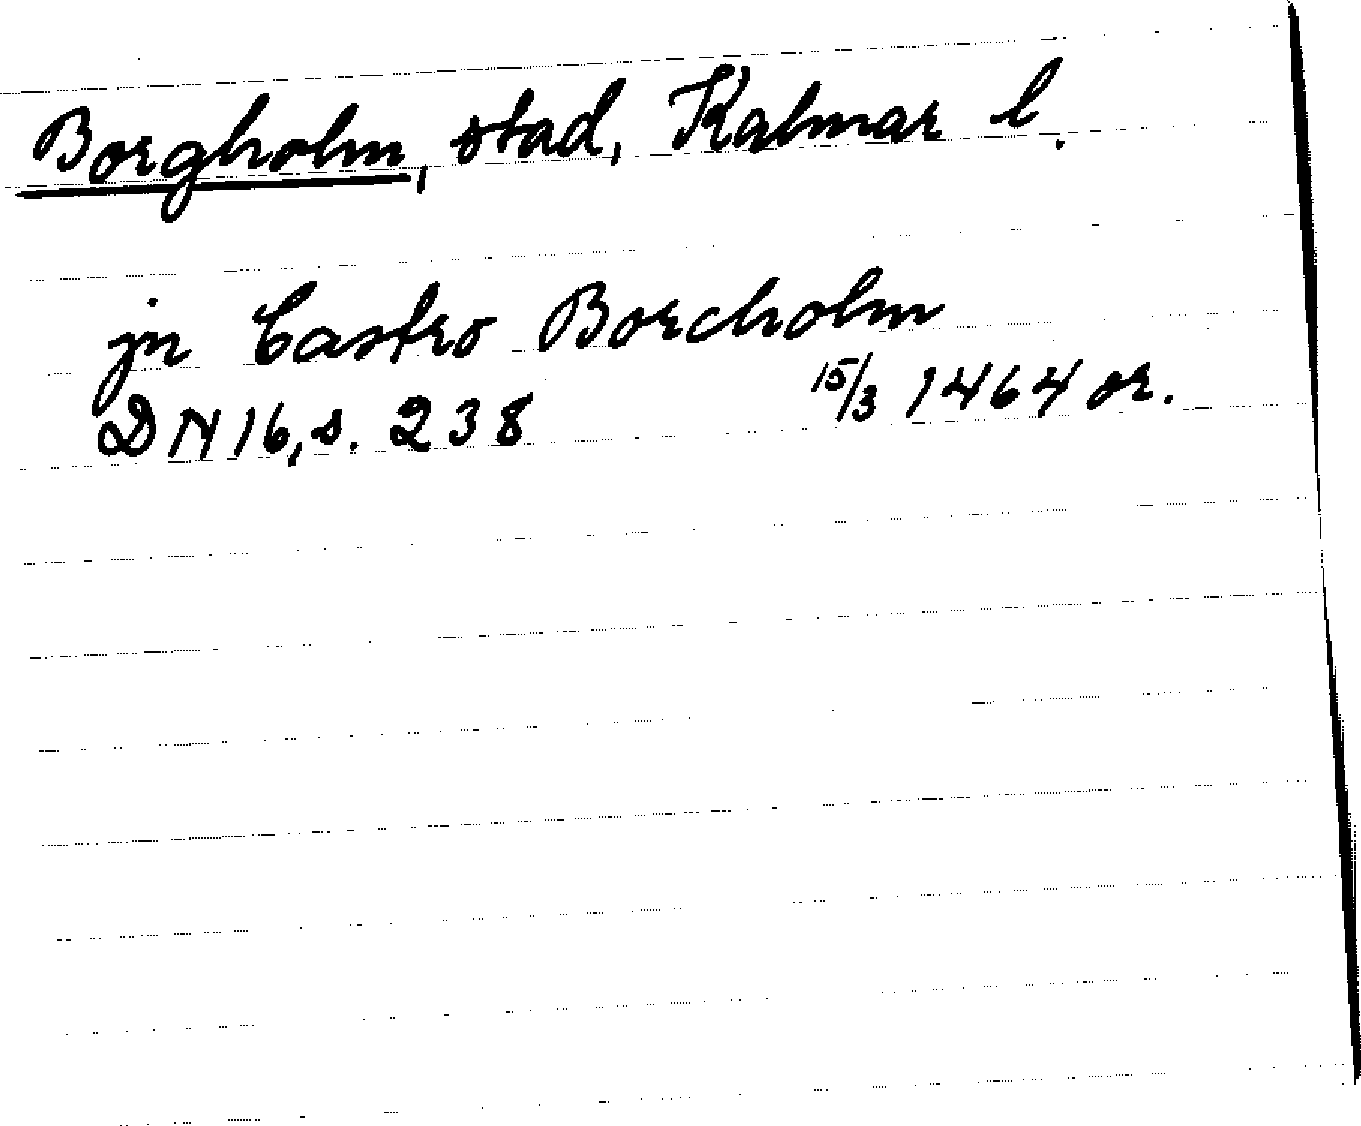 Borgholm, stad, Kalmar l.
jn Castro Borcholm
DN 16, s. 238 15/3 1464 or.